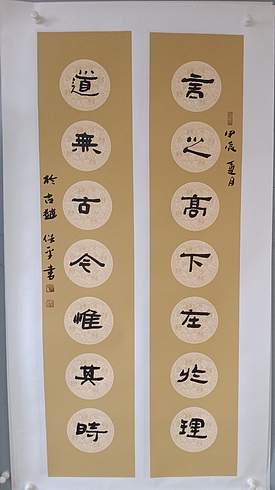 言之高下在於理
甲辰夏月
道無古今惟其時
於古越 保平書